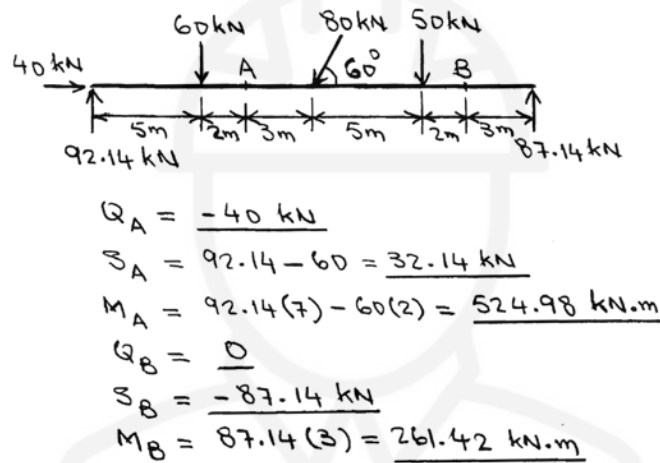 60kN 80kN 50kN
40kN A 60° B
5m 2m 3m 5m 2m 3m
92.14 kN 87.14 kN
Q_A = -40 kN
S_A = 92.14 - 60 = 32.14 kN
M_A = 92.14(7) - 60(2) = 524.98 kN.m
Q_B = 0
S_B = -87.14 kN
M_B = 87.14(3) = 261.42 kN.m